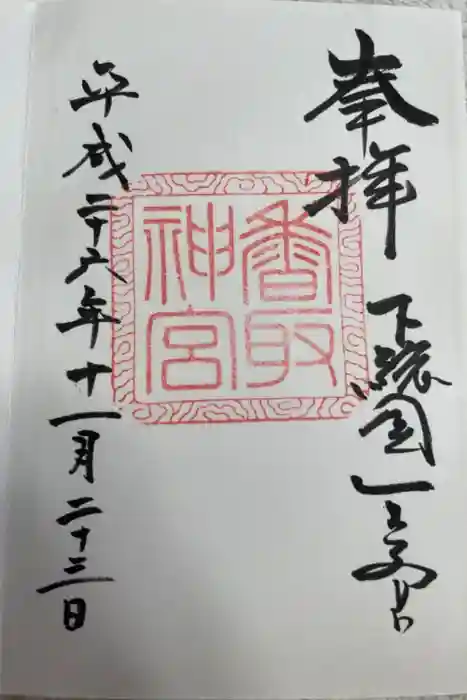 奉拝 下総国一之宮
香取
神宮
平成二十六年十一月二十三日